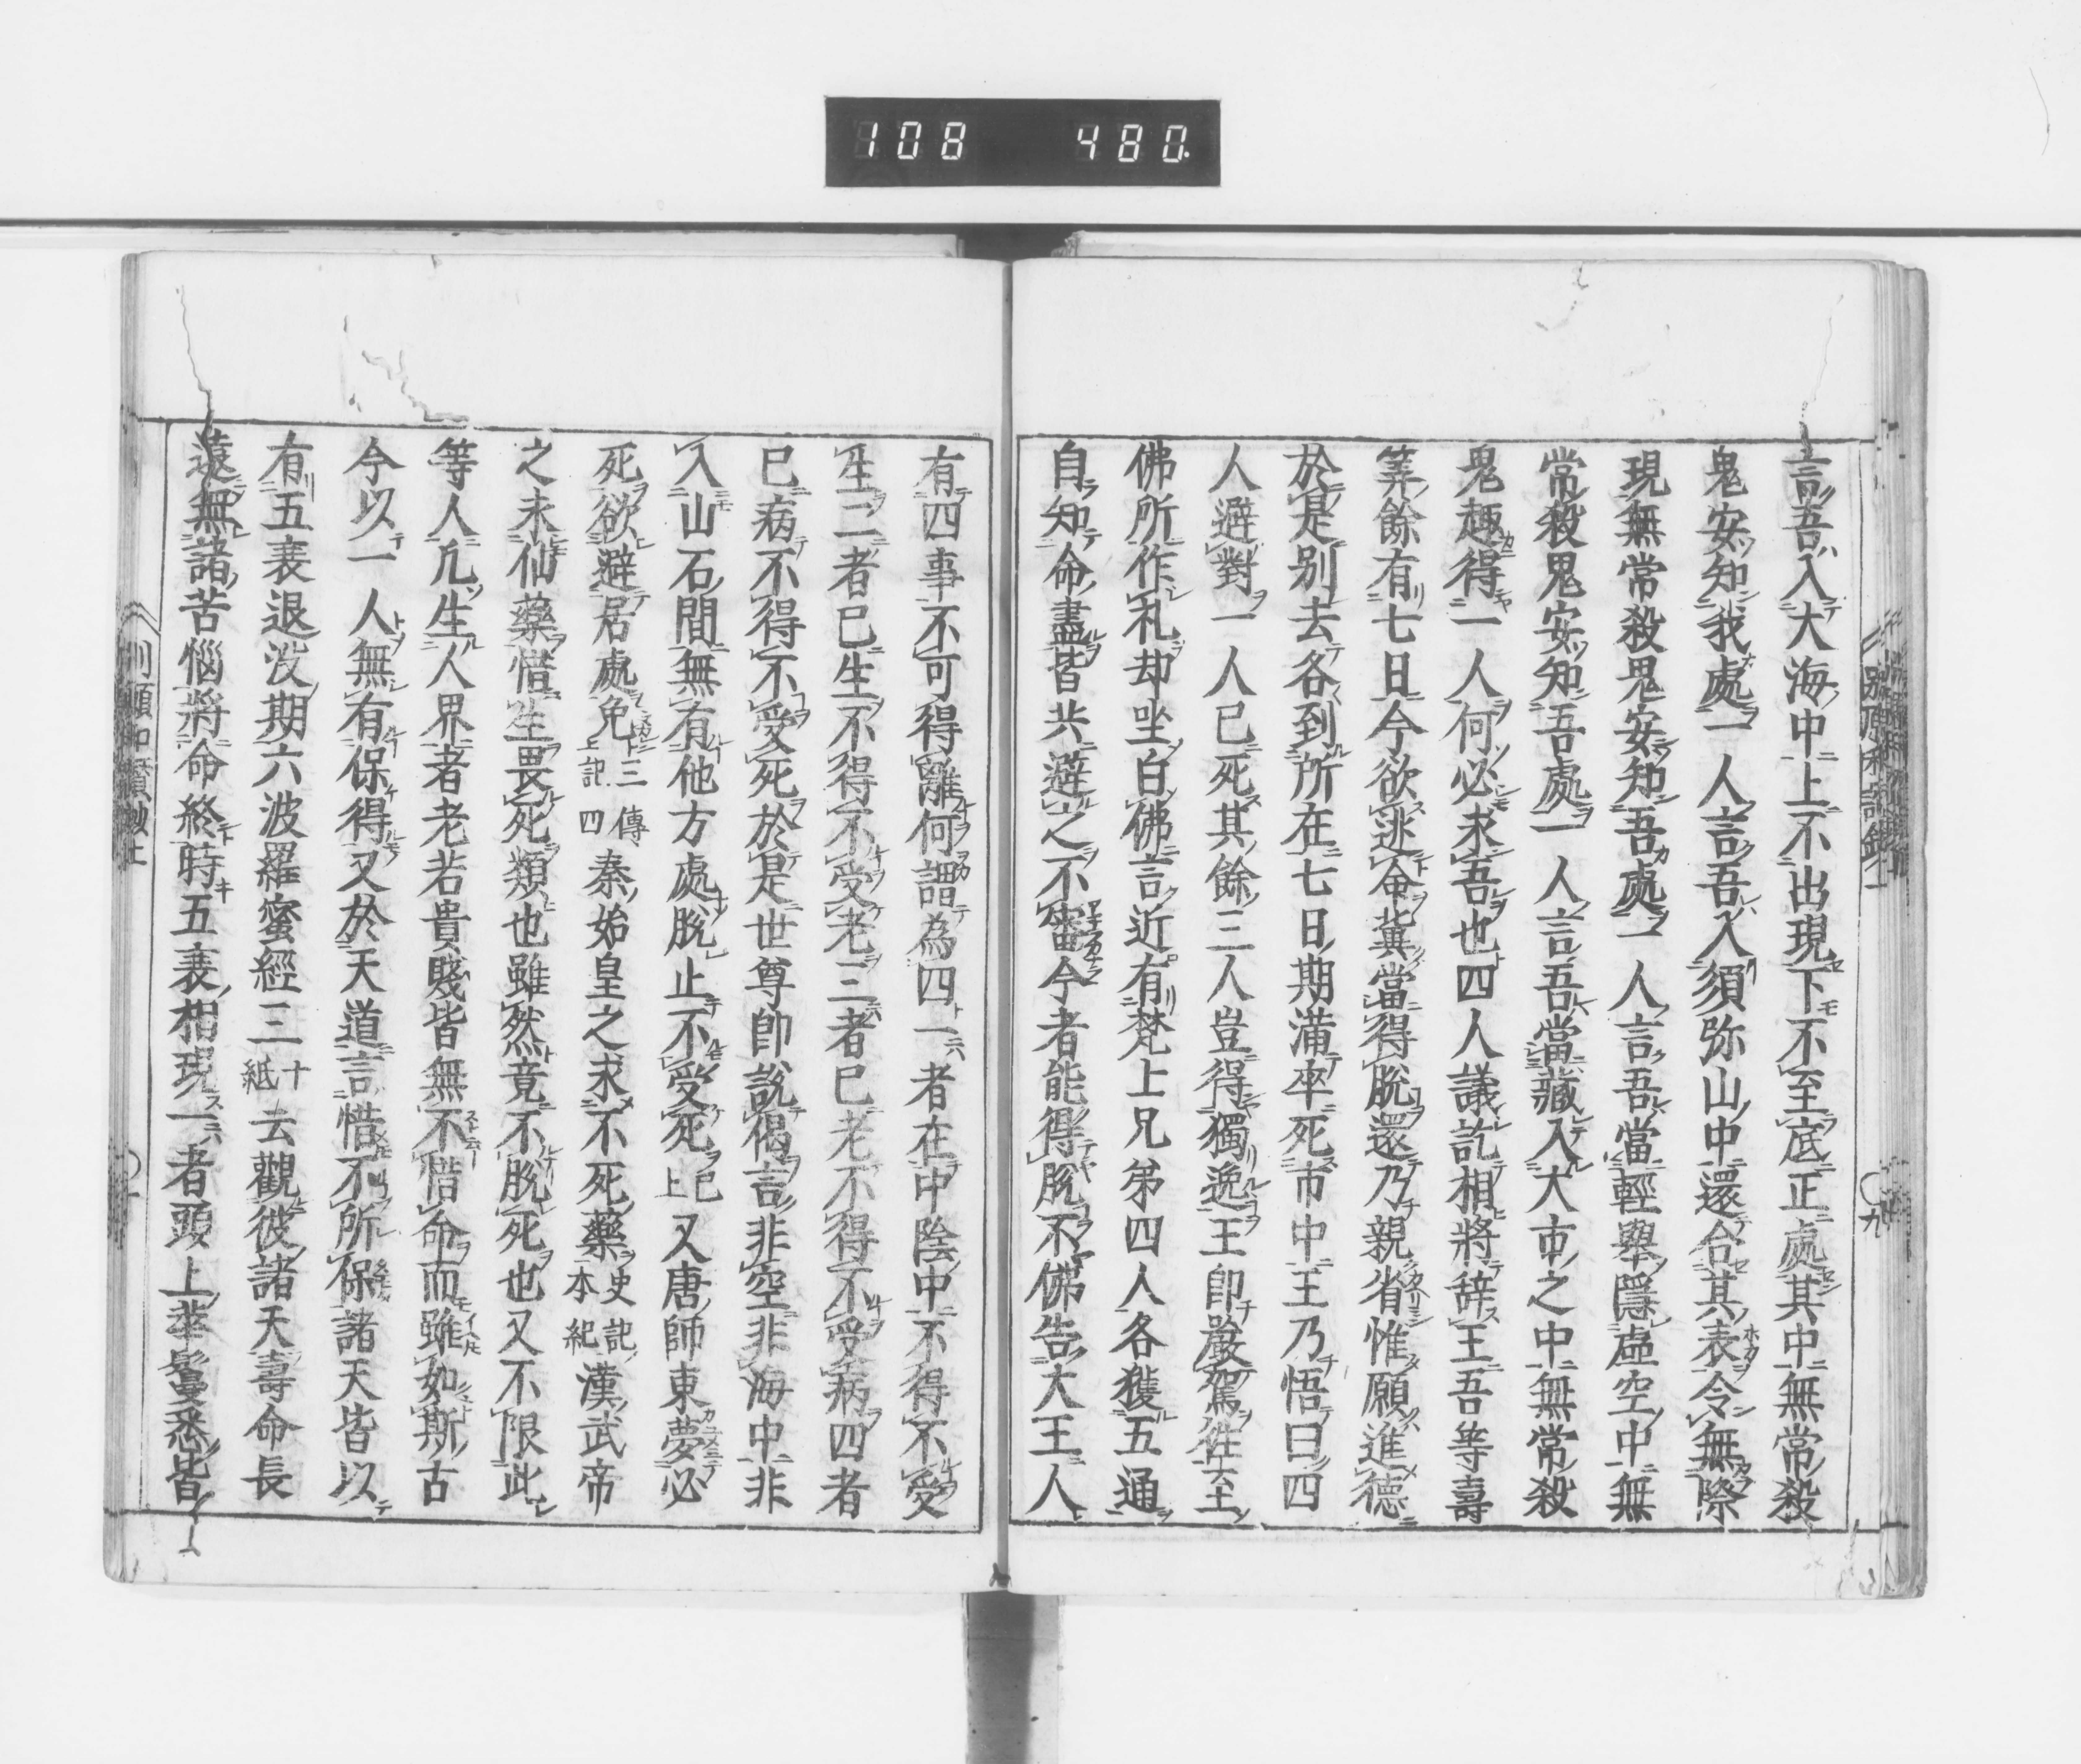 108 480.
言吾入大海中上不出現下不至底正處其中無常殺
鬼安知我處一人言吾入須弥山中還合其表令無際
現無常殺鬼安知吾處一人言吾當輕舉隱虛空中無
常殺鬼安知吾處一人言吾當藏入大市之中無常殺
鬼趣得一人何必求吾也四人議訖相將辞王吾等壽
筭餘有七日今欲逃命冀當得脫還乃親省惟願進德
於是别去各到所在七日期滿卒死市中王乃悟曰四
人避對一人已死其餘三人豈得獨逸王即嚴駕往至
佛所作礼却坐白佛言近有梵上兄弟四人各獲五通
自知命盡皆共避之不審今者能得脫不佛告大王人
有四事不可得離何謂為四一者在中陰中不得不受
生二者已生不得不受老三者已老不得不受病四者
已病不得不受死於是世尊即說偈言非空非海中非
入山石間無有他方處脫止不受死已上又唐師東夢必
死欲避居處免三傳四上記秦始皇之求不死藥史記本紀漢武帝
之未仙藥惜生畏死類也雖然竟不脫死也又不限此
等人凢生人界者老若貴賤皆無不惜命而雖如斯古
今以一人無有保得又於天道言惜不所保諸天皆以
有五衰退没期六波羅蜜經三十紙去觀彼諸天壽命長
遠無諸苦惱將命終時五衰相現一者頭上華鬘悉皆